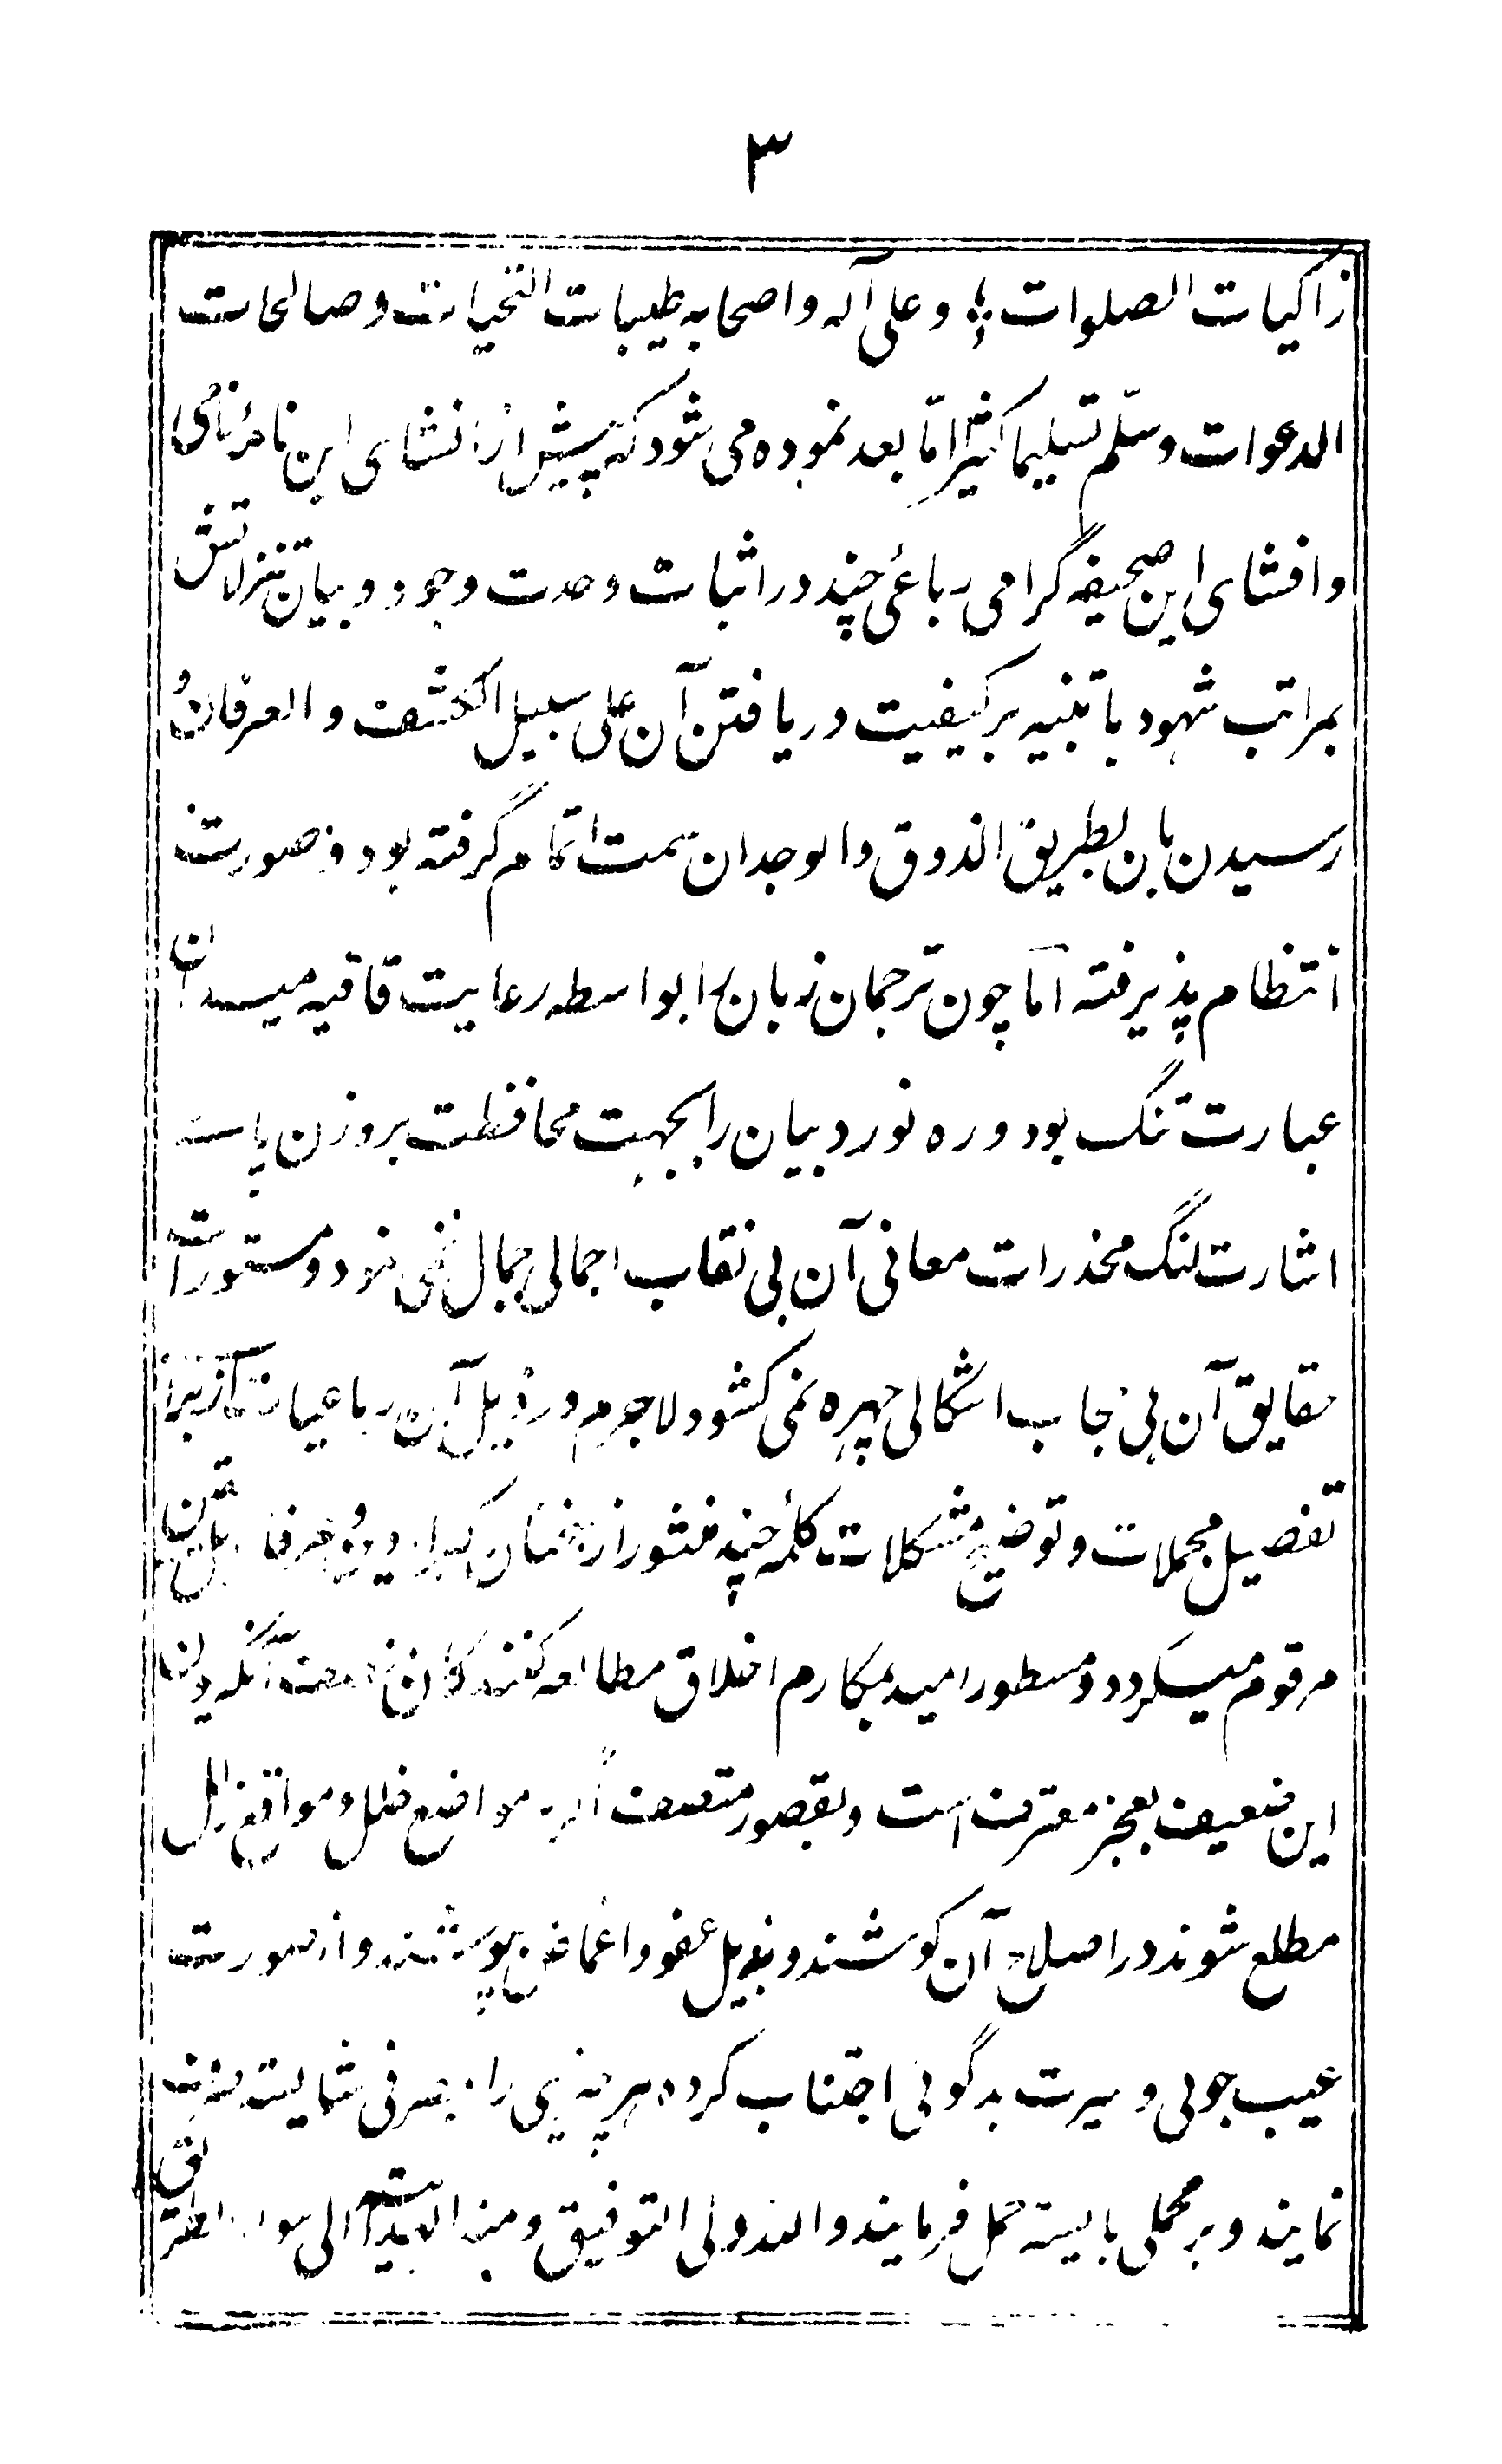 ۳
زاکیات الصلوات و علی آله و اصحابه طیبات التحیات و صالحات
الدعوات و سلّم تسلیما کثیرا امّا بعد نموده می شود که پیش از انشای این نامهٔ نامی
و افشای این صحیفه گرامی رباعئ چند در اثبات وحدت وجود و بیان تنزلاتش
بمراتب شهود با تنبیه بر کیفیت دریافتن آن علی سبیل الکشف و العرفان و
رسیدن بآن بطریق الذوق و الوجدان سمت اتمام گرفته بود و صورت
انتظام پذیرفته امّا چون ترجمان زبان را بواسطه رعایت قافیه میدان
عبارت تنگ بود و ره نورد بیان را بجهت محافظت بر وزن پای
اشارت لنگ مخدرات معانی آن بی نقاب اجمالی جمال نمی نمود و مستورات
حقایق آن بی حجاب اشکالی چهره نمی کشود لاجرم در ذیل آن رباعیات از برای
تفصیل مجملات و توضیح مشکلات کلمهٔ چند منثور از سخنان کبرای دین و عرفای اهل یقین
مرقوم میگردد و مسطور امید بمکارم اخلاق مطالعه کنندگان آنکه چون
این ضعیف بعجز معترف است و بقصور متصف اگر بر مواضع خلل و مواقع زلل
مطلع شوند در اصلاح آن کوشند و بذیل عفو و اغماض بپوشند و از صورت
عیب جوئی و سیرت بدگوئی اجتناب کرده هر چیزی را بمصرفی شایسته صرف
نمایند و بر محملی بایسته حمل فرمایند و الله ولی التوفیق و منه الهدایت الی سواء الطریق